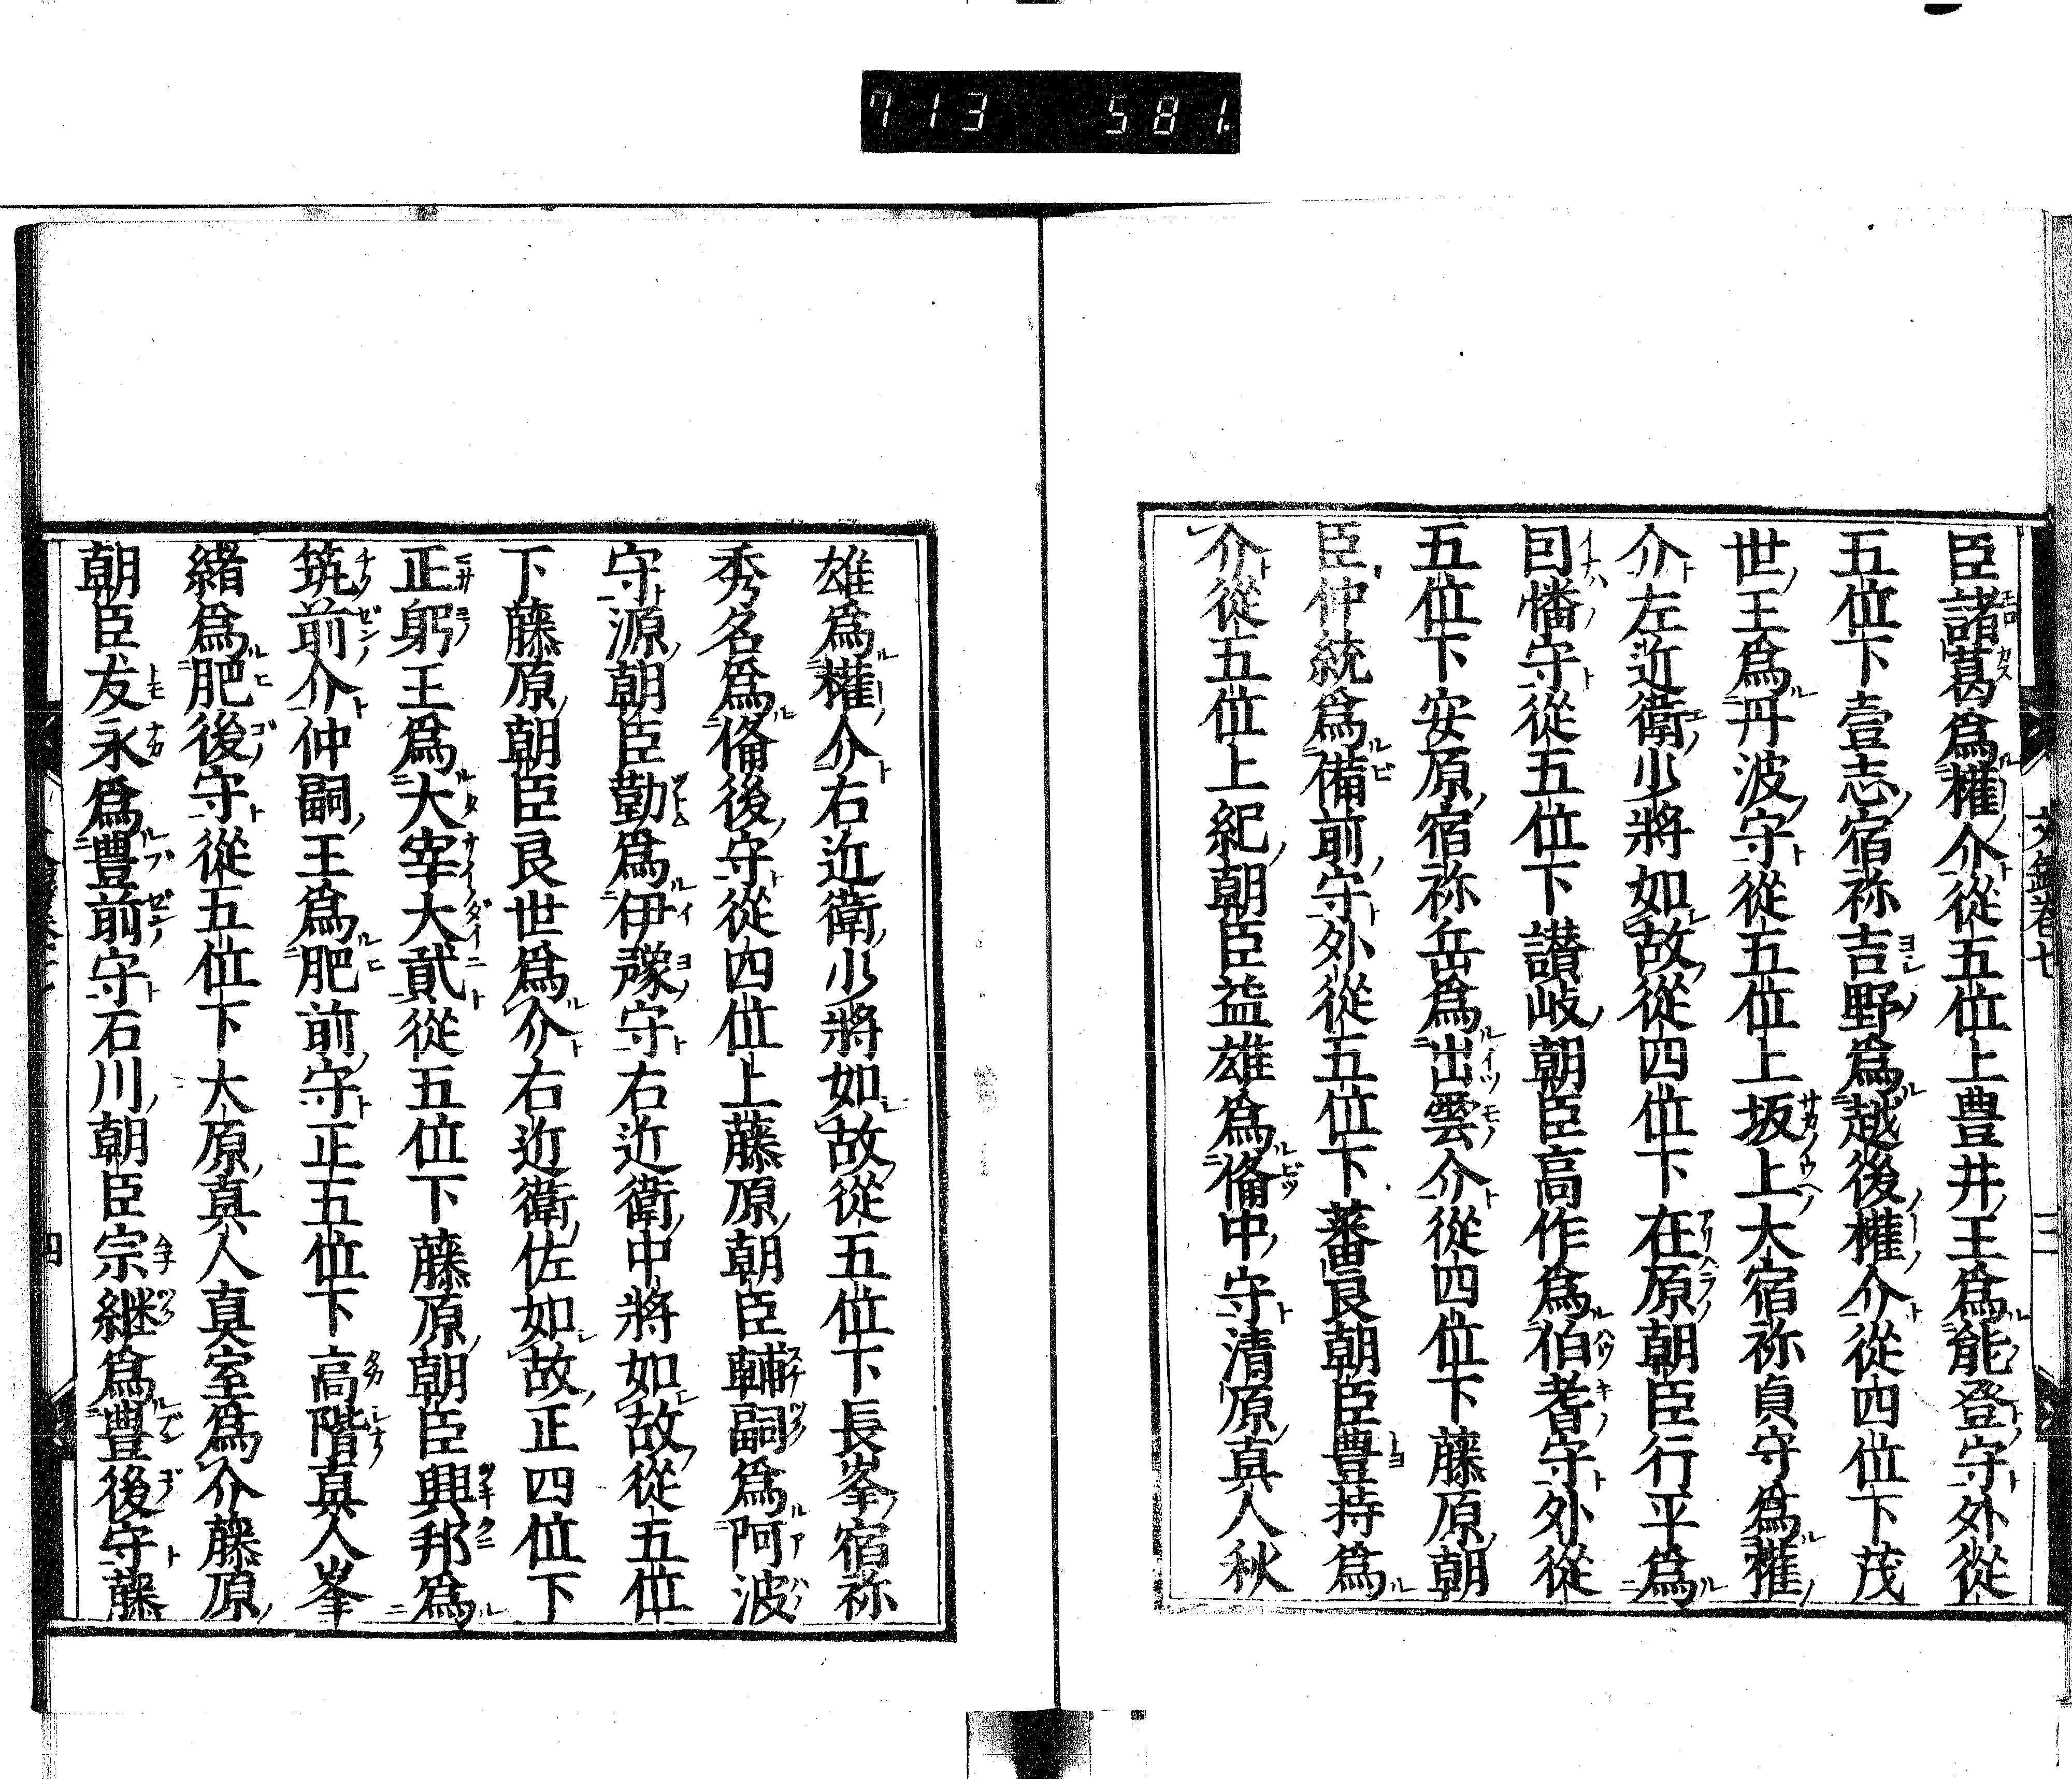 713 581.
文録卷七
臣諸葛爲權介從五位上豊井王爲能登守外從
五位下壹志宿祢吉野爲越後權介從四位下茂
世王爲丹波守從五位上坂上大宿祢貞守爲權
介左近衛少將如故從四位下在原朝臣行平爲
因幡守從五位下讃岐朝臣高作爲伯耆守外從
五位下安原宿祢岳爲出雲介從四位下藤原朝
臣仲統爲備前守外從五位下蕃良朝臣豊持爲
介從五位上紀朝臣益雄爲備中守清原真人秋
雄爲權介右近衛少將如故從五位下長岑宿祢
秀名爲備後守從四位上藤原朝臣輔嗣爲阿波
守源朝臣勤爲伊豫守右近衛中將如故從五位
下藤原朝臣良世爲介右近衛佐如故正四位下
正躬王爲大宰大貳從五位下藤原朝臣興邦爲
筑前介仲嗣王爲肥前守正五位下高階真人岑
緒爲肥後守從五位下大原真人真室爲介藤原
朝臣友永爲豊前守石川朝臣宗継爲豊後守藤
四